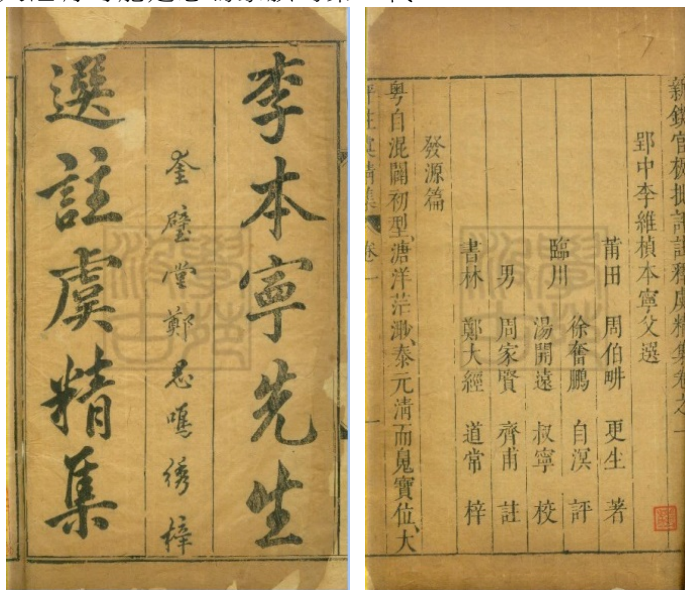 李本寧先生
奎璧堂鄭思鳴綉梓
選註虞精集
新鐫官板批評註釋虞精集卷之一
郢中李維楨本寧父選
莆田 周伯畊 更生 著
臨川 徐奮鵬 自溟 評
湯開遠 叔寧 校
男 周家賢 齊甫 註
書林 鄭大經 道常 梓
發源篇
粤自混闢初型、溏洋茫渺、泰元清而皃寶位、大
卷一
一
學苑汲古
學苑汲古